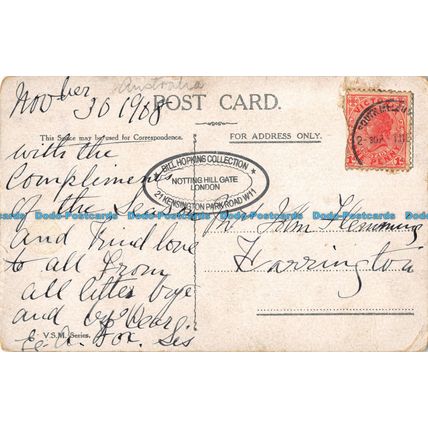 Australia
Nov ber 30 1908
POST CARD.
This Space may be used for Correspondence.
FOR ADDRESS ONLY.
VICTORIA
ONE PENNY
BILL HOPKINS COLLECTION
NOTTING HILL GATE
LONDON
21 KENSINGTON PARK ROAD W11
Dodo-Postcards Dodo-Postcards Dodo-Postcards Dodo-Postcards Dodo-Postcards
with the
Compliments
of the
and kind love
to all from
all
and
Sis
V.S.M. Series.
John Flemming
Farrington